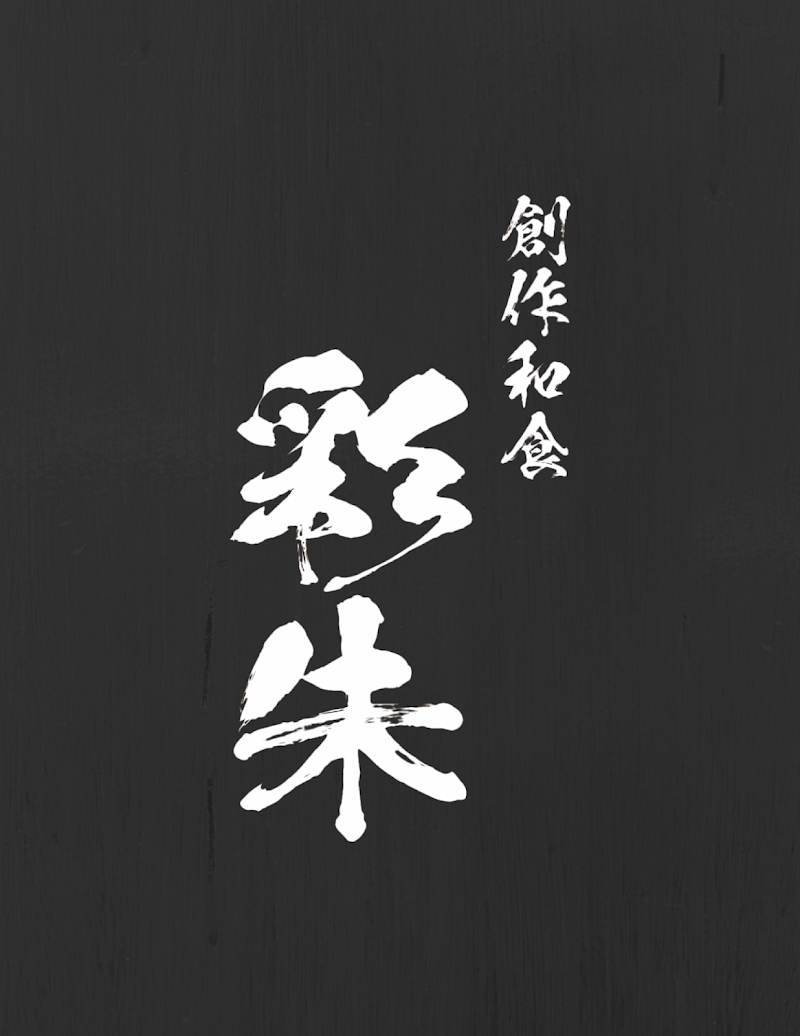 創作和食
彩朱